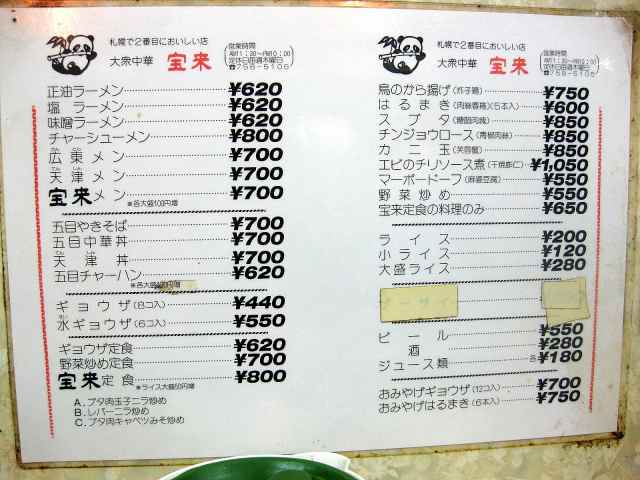 札幌で2番目においしい店
大衆中華 宝来
営業時間
AM11:30〜PM10:00
定休日毎週木曜日
正油ラーメン ¥620
塩ラーメン ¥620
味噌ラーメン ¥620
チャーシューメン ¥800
広東メン ¥700
天津メン ¥700
宝来メン ¥700
※各大盛100円増
五目やきそば ¥700
五目中華丼 ¥700
天津丼 ¥700
五目チャーハン ¥620
ギョウザ(8コ入) ¥440
水ギョウザ(6コ入) ¥550
ギョウザ定食 ¥620
野菜炒め定食 ¥700
宝来定食 ¥800
※ライス大盛50円増
A.ブタ肉玉子ニラ炒め
B.レバーニラ炒め
C.ブタ肉キャベツみそ炒め
札幌で2番目においしい店
大衆中華 宝来
営業時間
AM11:30〜PM10:00
定休日毎週木曜日
鳥のから揚げ(炸子鶏) ¥750
はるまき(肉絲春捲)(5本入) ¥600
スブタ(糖醋肉塊) ¥850
チンジョウロース(青椒肉絲) ¥850
カニ玉(芙蓉蟹) ¥850
エビのチリソース煮(干焼蝦仁) ¥1,050
マーボードーフ(麻婆豆腐) ¥550
野菜炒め ¥550
宝来定食の料理のみ ¥650
ライス ¥200
小ライス ¥120
大盛ライス ¥280
ビール ¥550
酒 ¥280
ジュース類 各¥180
おみやげギョウザ(12コ入) ¥700
おみやげはるまき(6本入) ¥750